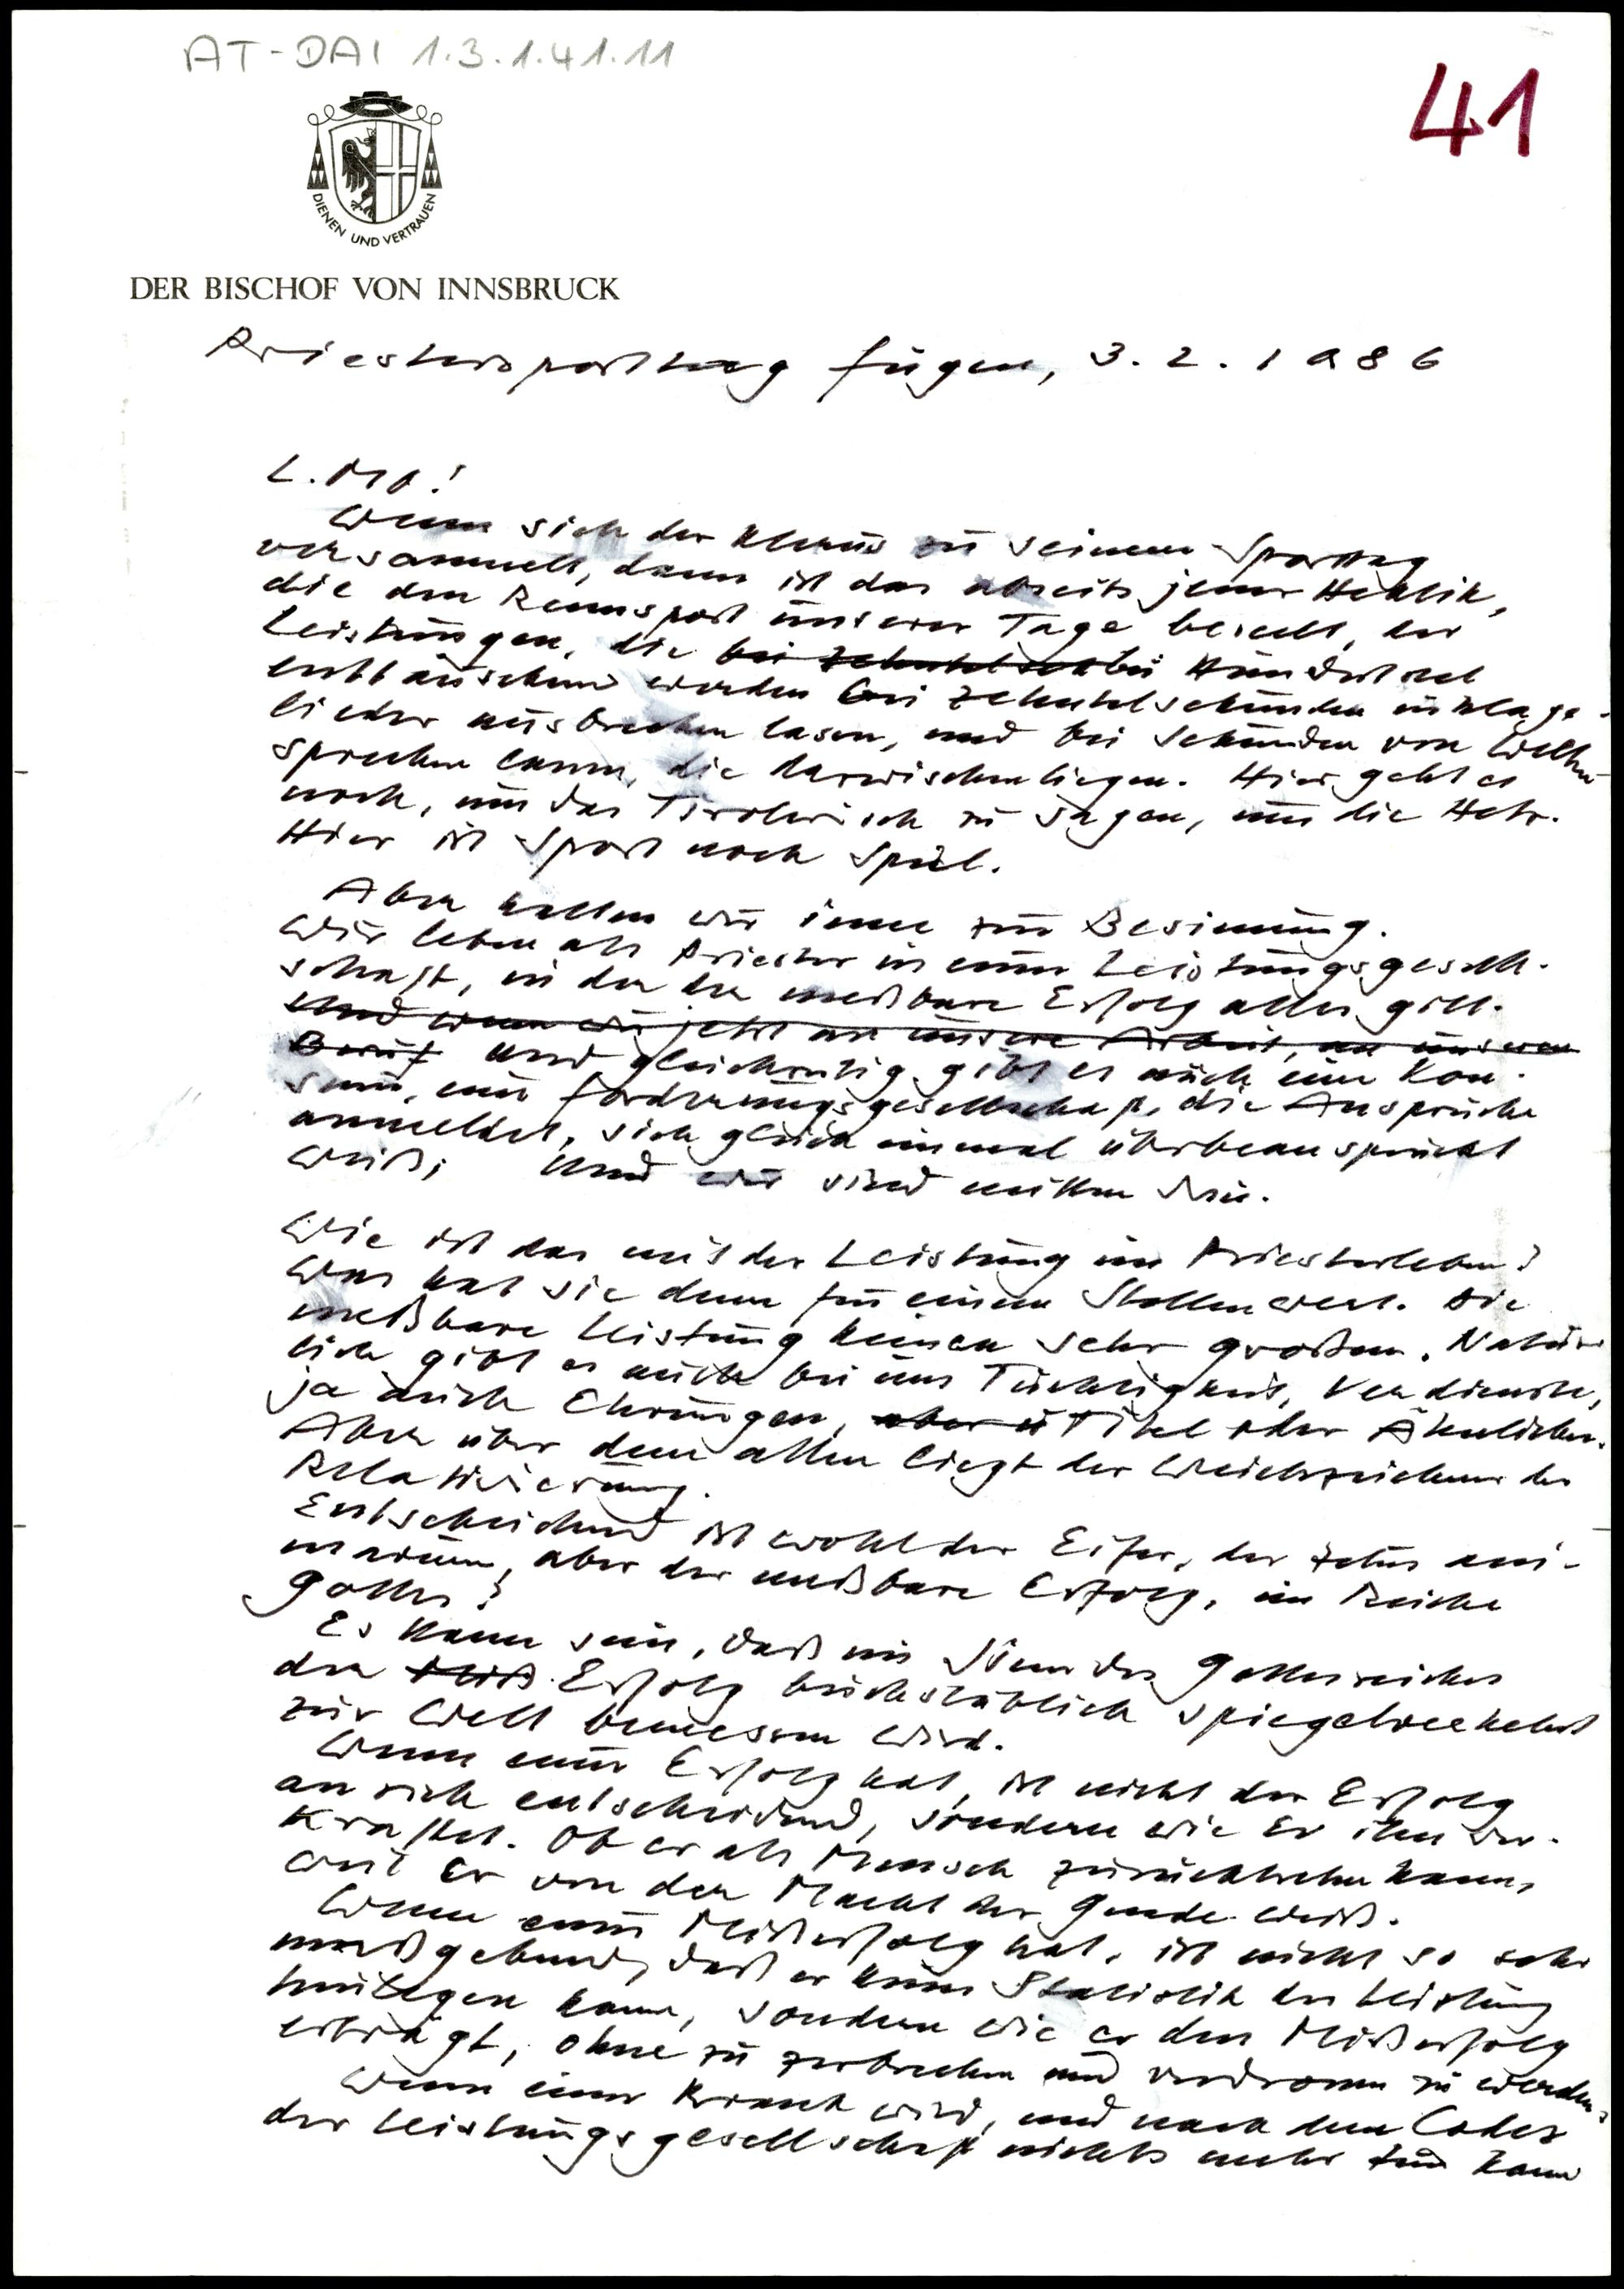 AT-DAI 1.3.1.41.11
41
DIENEN UND VERTRAUEN
DER BISCHOF VON INNSBRUCK
Priestersporttag Fügen, 3.2.1986
L. Mb.!
Wenn sich der Klerus zu seinem Sporttag
versammelt, dann ist das abseits jener Hektik,
die den Rennsport unserer Tage beseelt, der
Leistungen, die bei Zehntelsek bei Hundertstel
enttäuschend werden bei Zehntelsekunden in Klage-
lieder ausbrechen lassen, und bei Sekunden von Welten
sprechen lassen, die dazwischenliegen. Hier geht es
noch, um das Tirolerisch zu sagen, um die Hetz.
Hier ist Sport noch Spiel.
Aber halten wir inne zur Besinnung.
Wir leben als Priester in einer Leistungsgesell-
schaft, in der der meßbare Erfolg alles gilt.
Und wenn wir jetzt an unsere Arbeit, an unseren
Beruf Und gleichzeitig gibt es auch eine Kon-
sum, eine Forderungsgesellschaft, die Ansprüche
anmeldet, sich gleich einmal überbeansprucht
weiß; Und wir sind mitten drin.
Wie ist das mit der Leistung im Priesterleben?
Was hat sie denn für einen Stellenwert. Die
meßbare Leistung keinen sehr großen. Natür-
lich gibt es auch bei uns Tüchtigkeit, Verdienste,
ja auch Ehrungen, aber ü Titel oder Ähnliches.
Aber über dem allen liegt der Weichzeichner der
Relativierung.
Entscheidend ist wohl der Eifer, der zelus ani-
marum, aber der meßbare Erfolg, im Reiche
Gottes?
Es kann sein, daß im Sinn des Gottesreiches
der Miß Erfolg buchstäblich spiegelverkehrt
zur Welt bemessen wird.
Wenn einer Erfolg hat, ist nicht der Erfolg
an sich entscheidend, sondern wie Er ihn ver-
kraftet. Ob er als Mensch zurücktreten kann,
weil Er von der Macht der Gnade weiß.
Wenn einer Mißerfolg hat, ist nicht so sehr
maßgebend, daß er keine Statistik der Leistung
hinlegen kann, sondern wie er den Mißerfolg
erträgt, ohne zu zerbrechen und verdrossen zu werden.
Wenn einer krank wird, und nach dem Codex
der Leistungsgesellschaft nichts mehr tun kann